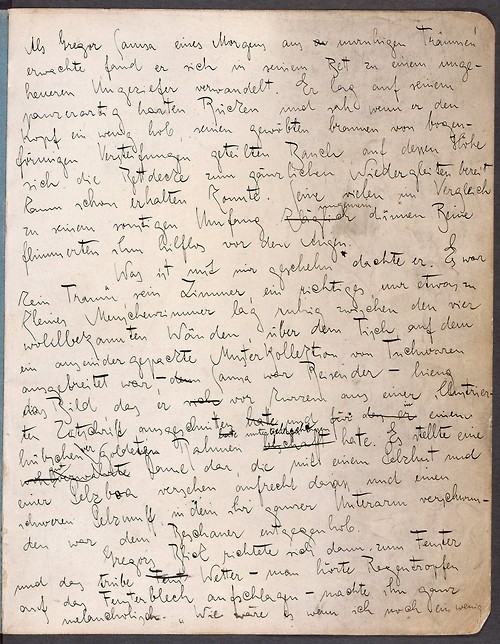 Als Gregor Samsa eines Morgens aus unruhigen Träumen
erwachte fand er sich in seinem Bet zu einem unge-
heueren Ungeziefer verwandelt. Er lag auf seinem
panzerartig harten Rücken und sah wenn er den
Kopf ein wenig hob seinen gewölbten braunen von bogen-
förmigen Versteifungen geteilten Bauch auf dessen Höhe
sich die Bettdecke zum gänzlichen Niedergleiten bereit
kaum schon erhalten konnte. Seine vielen im Vergleich
zu seinem sonstigen Umfang dünnen Beine
flimmerten ihm hilflos vor den Augen.
Was ist mit mir geschehn" dachte er. Es war
kein Traum, sein Zimmer ein richtiges nur etwas zu
kleines Menschenzimmer lag ruhig zwischen den vier
wohlbekannten Wänden, über dem Tisch, auf dem
ein auseinandergepackte Musterkollektion von Tuchwaren
ausgebreitet war – Samsa war Reisender – hieng
das Bild das er vor kurzem aus einer Illustrier-
ten Zeitschrift ausgeschnitten und einem
hübschen goldeten Rahmen hatte. Es stellte eine
Dame dar, die mit einem Pelzhut und
einer Pelzboa versehen aufrecht dasass und einen
schweren Pelzmuff in dem ihr ganzer Unterarm verschwun-
den war dem Beschauer entgegenhob.
Gregors Blick richtete sich dann zum Fenster
und das trübe Wetter – man hörte Regentropfen
auf das Fensterblech aufschlagen – machte ihn ganz
melancholisch. „Wie wäre es wenn ich noch ein wenig